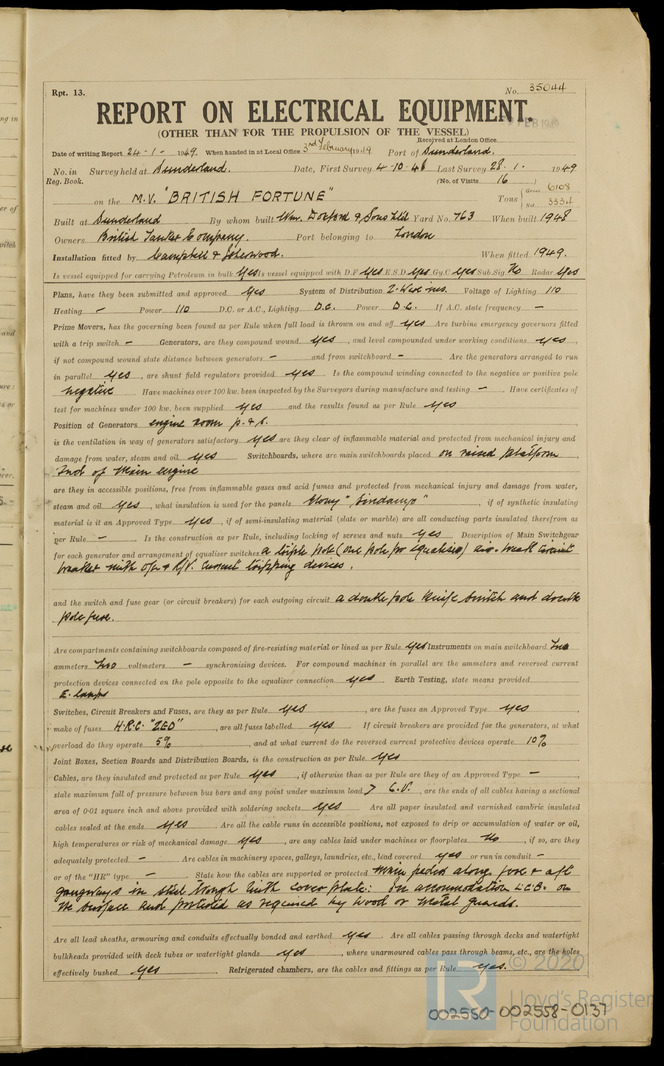 Rpt. 13.
No. 35044
REPORT ON ELECTRICAL EQUIPMENT.
(OTHER THAN FOR THE PROPULSION OF THE VESSEL)
Received at London Office
Date of writing Report 24 - 1 - 1949. When handed in at Local Office 3rd February 1949 Port of Sunderland.
No. in Survey held at Sunderland. Date, First Survey 4 10 48 Last Survey 28. 1. 1949
Reg. Book.
(No. of Visits 16)
on the M.V. "BRITISH FORTUNE"
Tons Gross 6108
Net 3334
Built at Sunderland By whom built Wm. Doxford & Sons Ltd Yard No. 763 When built 1948
Owners British Tanker Company. Port belonging to London
Installation fitted by Campbell & Isherwood. When fitted 1949.
Is vessel equipped for carrying Petroleum in bulk Yes Is vessel equipped with D.F. Yes E.S.D. Yes Gy.C Yes Sub.Sig No Radar Yes
Plans, have they been submitted and approved Yes System of Distribution 2-Wire ins. Voltage of Lighting 110
Heating - Power 110 D.C. or A.C., Lighting D.C. Power D.C. If A.C. state frequency -
Prime Movers, has the governing been found as per Rule when full load is thrown on and off yes Are turbine emergency governors fitted
with a trip switch - Generators, are they compound wound yes, and level compounded under working conditions yes,
if not compound wound state distance between generators - and from switchboard - Are the generators arranged to run
in parallel yes, are shunt field regulators provided yes Is the compound winding connected to the negative or positive pole
negative Have machines over 100 kw. been inspected by the Surveyors during manufacture and testing - Have certificates of
test for machines under 100 kw. been supplied yes and the results found as per Rule yes
Position of Generators engine room p. & s.
is the ventilation in way of generators satisfactory yes are they clear of inflammable material and protected from mechanical injury and
damage from water, steam and oil yes Switchboards, where are main switchboards placed on raised platform
Fwd of main engine
are they in accessible positions, free from inflammable gases and acid fumes and protected from mechanical injury and damage from water,
steam and oil yes, what insulation is used for the panels Ebony "Sindanyo", if of synthetic insulating
material is it an Approved Type yes, if of semi-insulating material (slate or marble) are all conducting parts insulated therefrom as
per Rule - Is the construction as per Rule, including locking of screws and nuts yes Description of Main Switchgear
for each generator and arrangement of equaliser switches a triple pole (one pole for equaliser) air-break circuit
breaker with o/c & R/C. current tripping devices.
and the switch and fuse gear (or circuit breakers) for each outgoing circuit a double pole knife switch and double
pole fuse.
Are compartments containing switchboards composed of fire-resisting material or lined as per Rule yes Instruments on main switchboard Two
ammeters two voltmeters - synchronising devices. For compound machines in parallel are the ammeters and reversed current
protection devices connected on the pole opposite to the equaliser connection yes Earth Testing, state means provided
E. lamps
Switches, Circuit Breakers and Fuses, are they as per Rule yes, are the fuses an Approved Type yes,
make of fuses H.R.C. "ZED", are all fuses labelled yes If circuit breakers are provided for the generators, at what
overload do they operate 5% and at what current do the reversed current protective devices operate 10%
Joint Boxes, Section Boards and Distribution Boards, is the construction as per Rule yes
Cables, are they insulated and protected as per Rule yes, if otherwise than as per Rule are they of an Approved Type -
state maximum fall of pressure between bus bars and any point under maximum load 6.V., are the ends of all cables having a sectional
area of 0·01 square inch and above provided with soldering sockets yes Are all paper insulated and varnished cambric insulated
cables sealed at the ends yes Are all the cable runs in accessible positions, not exposed to drip or accumulation of water or oil,
high temperatures or risk of mechanical damage yes, are any cables laid under machines or floorplates No, if so, are they
adequately protected - Are cables in machinery spaces, galleys, laundries, etc., lead covered yes or run in conduit -
or of the "HR" type, - State how the cables are supported or protected main feeders along fore & aft
gangways in steel trough with cover plate: In accommodation L.C.B. on
the surface and protected as required by wood or metal guards.
Are all lead sheaths, armouring and conduits effectually bonded and earthed yes Are all cables passing through decks and watertight
bulkheads provided with deck tubes or watertight glands yes, where unarmoured cables pass through beams, etc., are the holes
effectively bushed yes Refrigerated chambers, are the cables and fittings as per Rule yes.
© 2020
Lloyd's Register
Foundation
002550-002558-0137